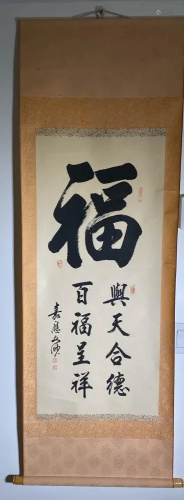 福
與天合德
百福呈祥
嘉慈